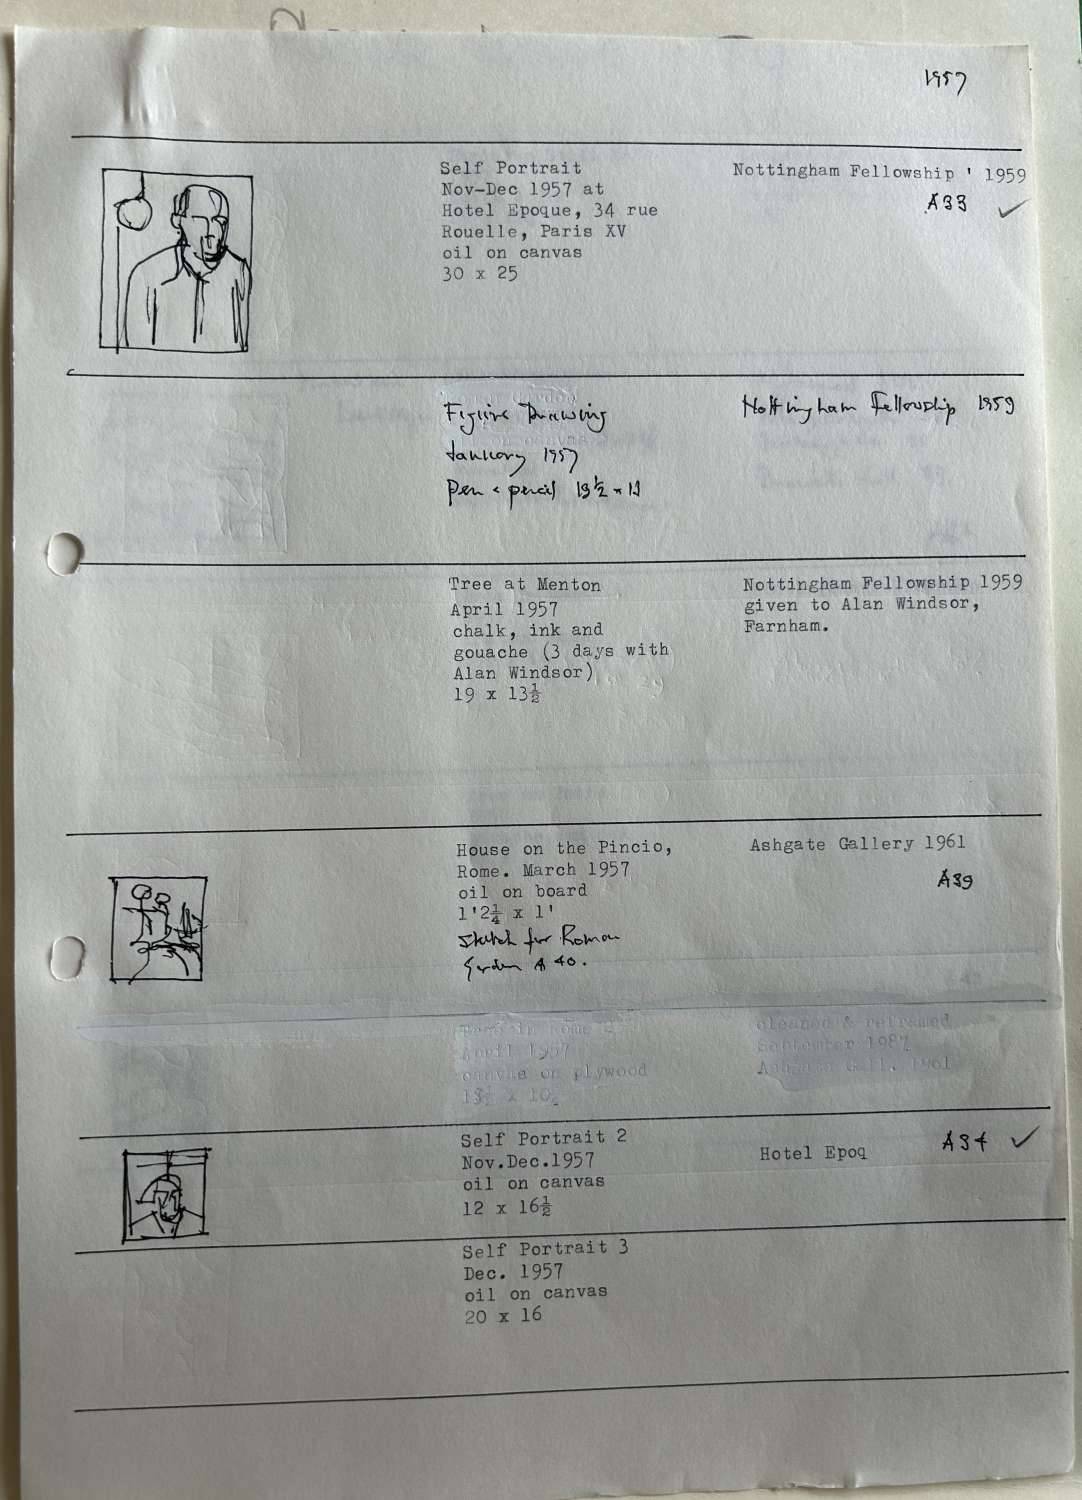 1957
Self Portrait
Nov-Dec 1957 at
Hotel Epoque, 34 rue
Rouelle, Paris XV
oil on canvas
30 x 25
Nottingham Fellowship ' 1959
A33 ✓
Figure Drawing
January 1957
Pen & pencil
Nottingham Fellowship 1959
Tree at Menton
April 1957
chalk, ink and
gouache (3 days with
Alan Windsor)
19 x 13½
Nottingham Fellowship 1959
given to Alan Windsor,
Farnham.
House on the Pincio,
Rome. March 1957
oil on board
1'2¼ x 1'
Sketch for Roman
Garden A 40.
Ashgate Gallery 1961
A39
April 1957
on plywood
cleaned & reframed
September 1987
Self Portrait 2
Nov.Dec.1957
oil on canvas
12 x 16½
Hotel Epoq
A34 ✓
Self Portrait 3
Dec. 1957
oil on canvas
20 x 16